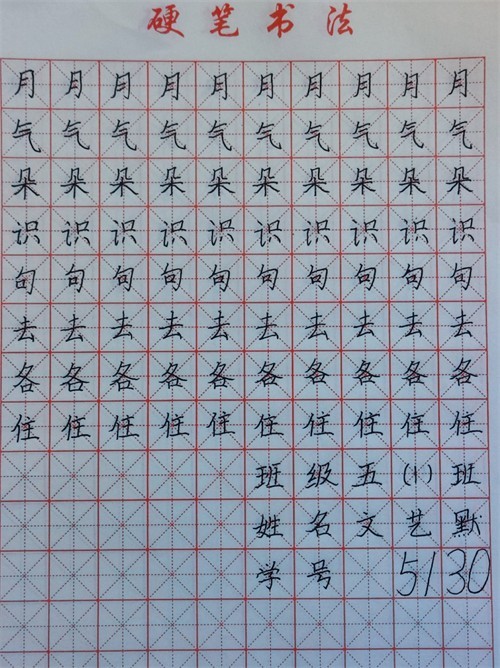 硬笔书法
月月月月月月月月月月
气气气气气气气气气气
朵朵朵朵朵朵朵朵朵朵
识识识识识识识识识识
句句句句句句句句句句
去去去去去去去去去去
各各各各各各各各各各
住住住住住住住住住住
班级五(1)班
姓名文艺默
学号5130